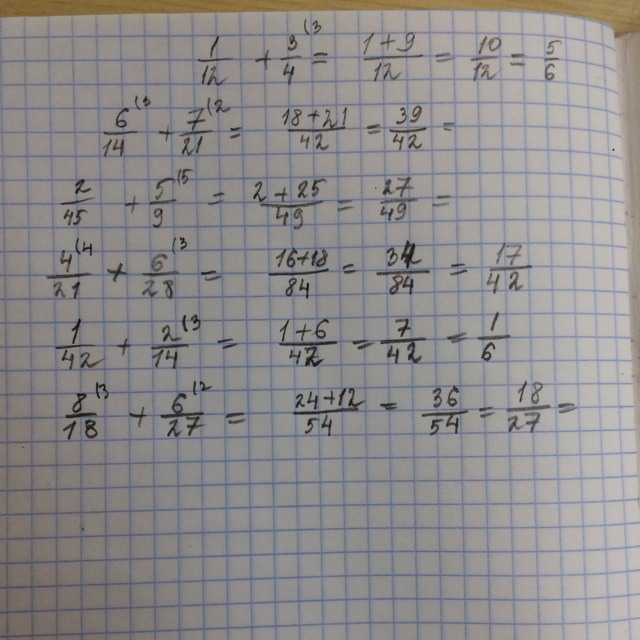 1/12 + 3/4 (3 = 1+9/12 = 10/12 = 5/6
6/14 (3 + 7/21 (2 = 18+21/42 = 39/42 =
2/45 + 5/9 (5 = 2+25/49 = 27/49 =
4/21 (4 + 6/28 (3 = 16+18/84 = 34/84 = 17/42
1/42 + 2/14 (3 = 1+6/42 = 7/42 = 1/6
8/18 (3 + 6/27 (2 = 24+12/54 = 36/54 = 18/27 =